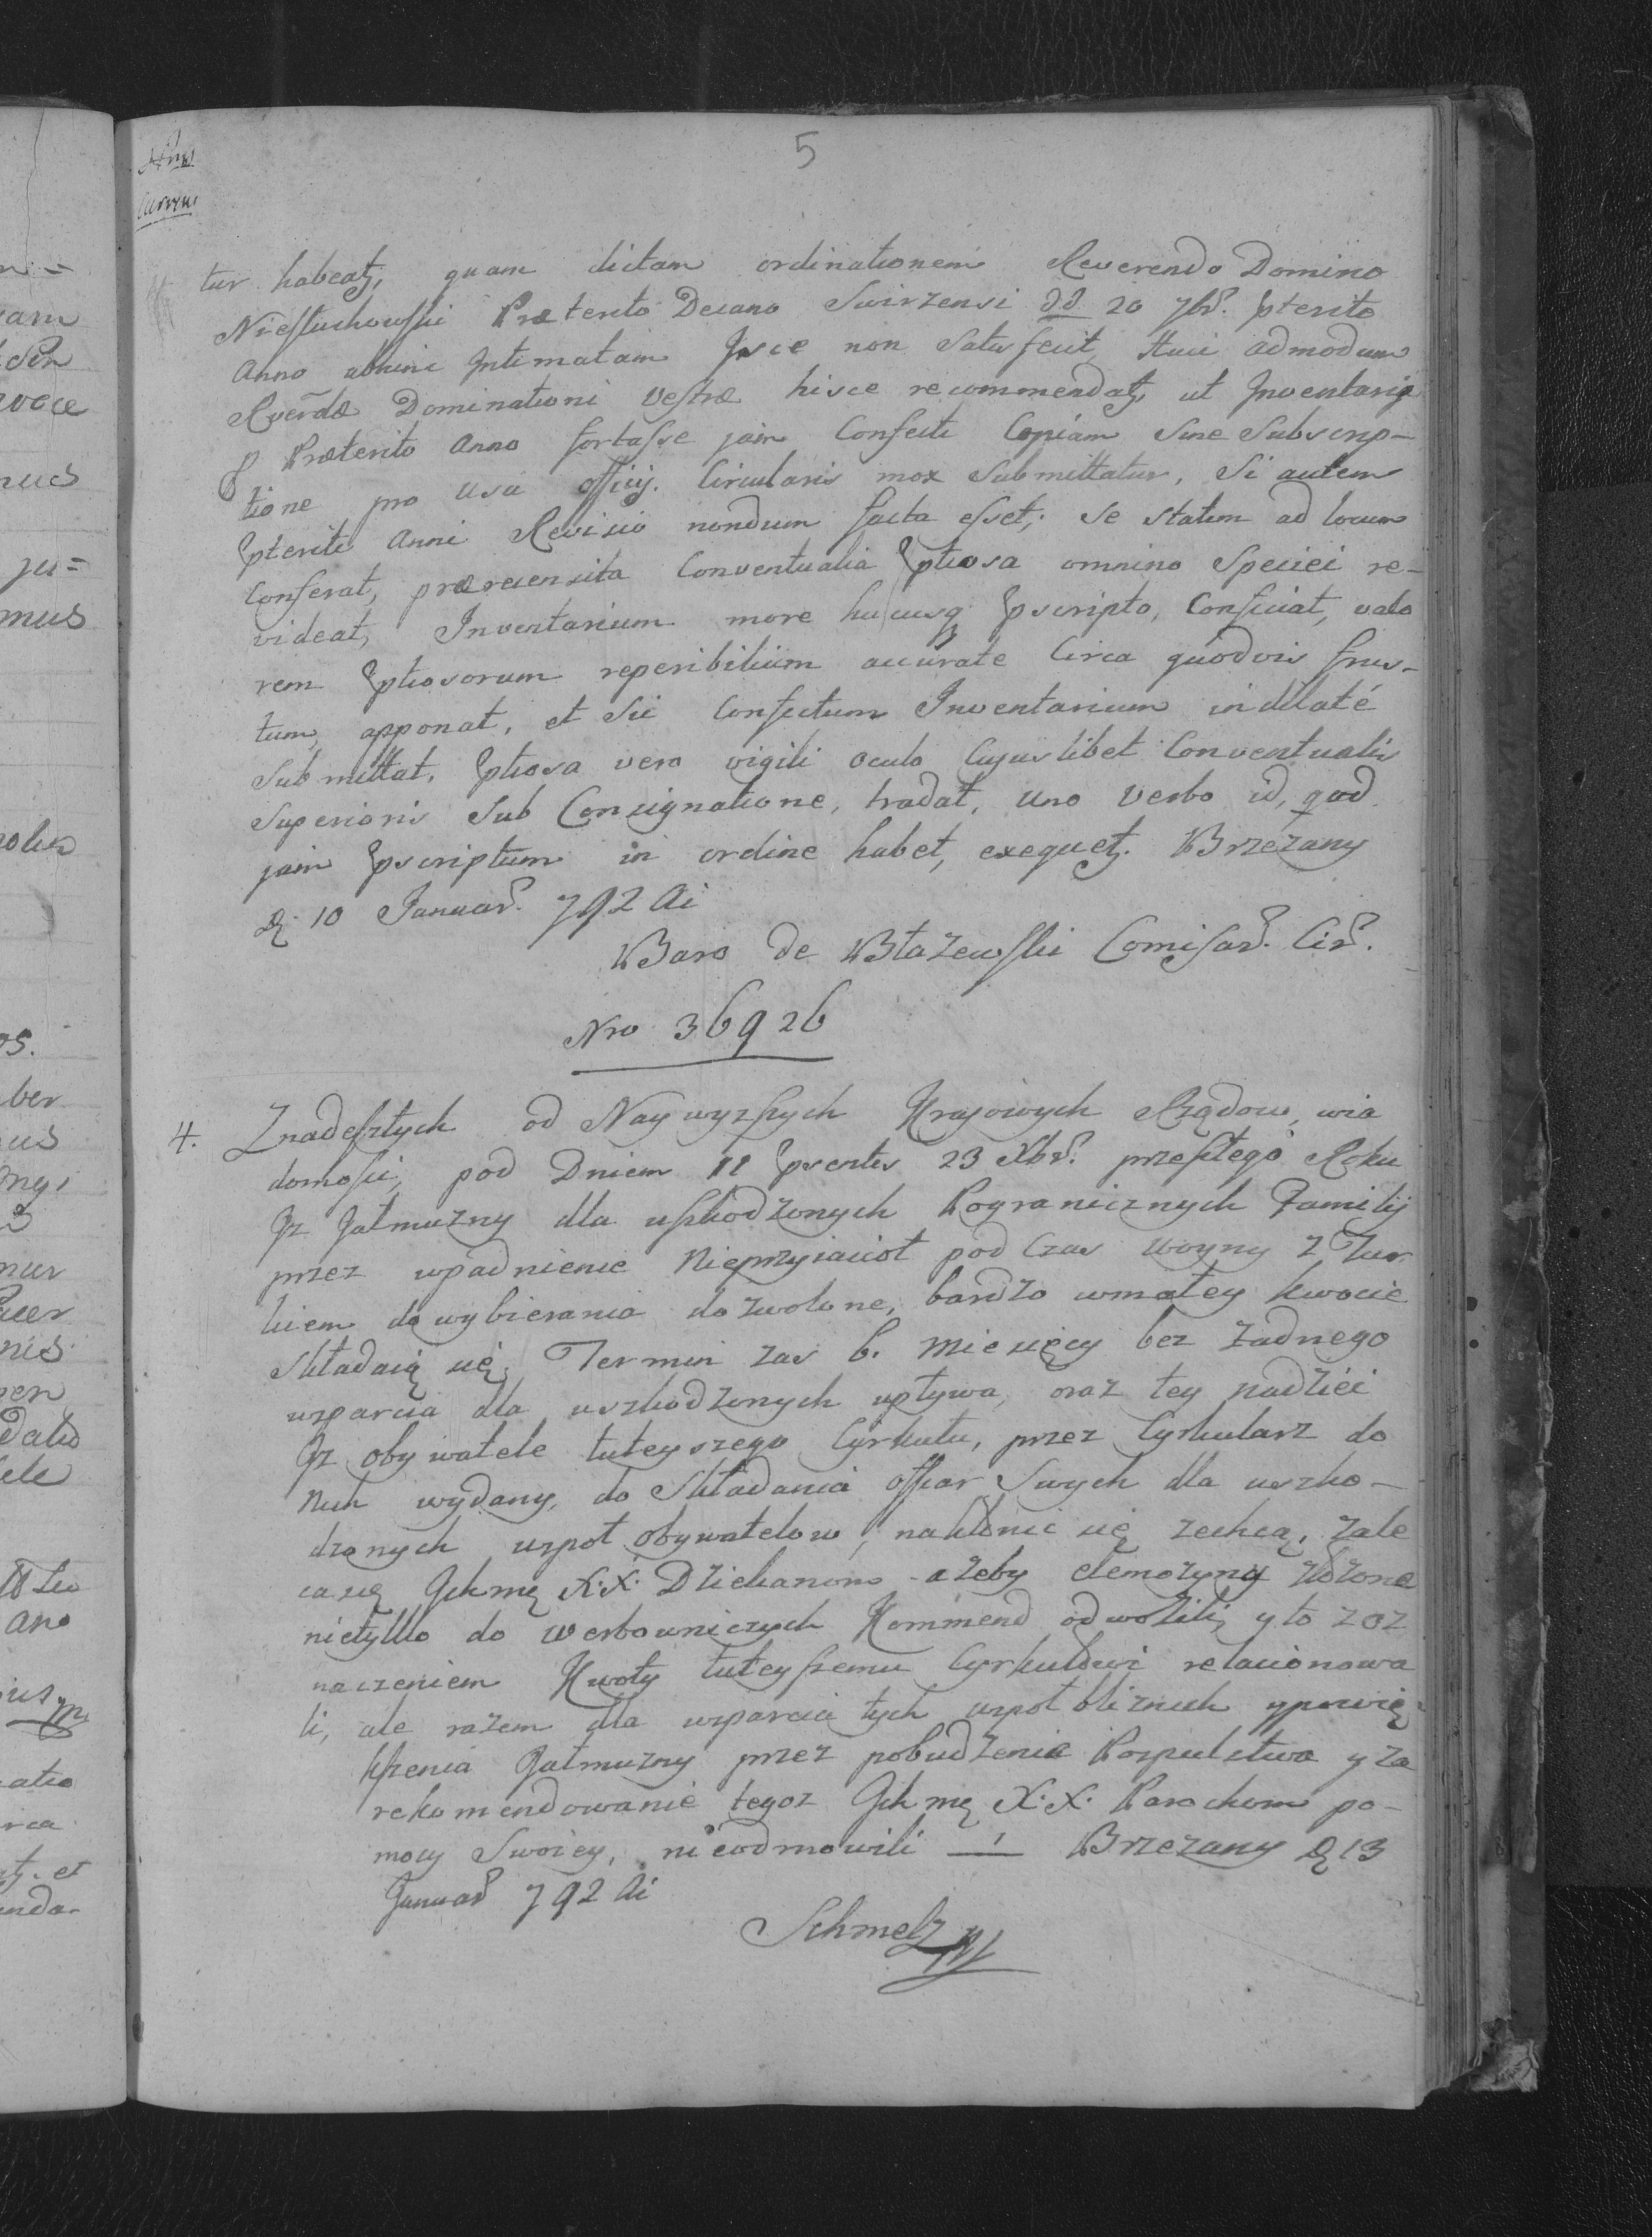 5
Curren
tur habeatz, quam dictam ordinationem Reverendo Domino
Niesluchowski Præterito Decano Swirzensi dd 20 7br. pterito
Anno abhinc Intimatam Ipse non satisfecit, Huic admodum
Rverdæ Dominationi Vestræ hisce recommendatz, ut Inventarij
p Præterito Anno fortasse jam Confecti Copiam Sine Subscrip-
tione pro Usu Officij Circularis mox Submittatur, Si autem
pteriti Anni Revisio nondum facta esset; se statim ad locum
Conferat, prærecensita Conventualia ptiosa omnino Speciei re-
videat, Inventarium more hucusq pscripto, Conficiat, valo
rem ptiosorum reperibilium accurate Circa quodvis frus-
tum, apponat, et Sic Confectum Inventarium indilaté
Submittat, ptiosa vero vigili oculo Cujuslibet Conventualis
Superioris Sub Consignatione, tradat, Uno Verbo id, quod
jam pscriptum in ordine habet, exequetz. Brzezany
D 10 Januar. 792 Ai
Baro de Błażewski Comisar. Cir.
Nro 36926
4. Znadeszłych od Naywyzszych Kraiowych Rządow, wia
domości, pod Dniem 11 psentis 23 Xbr. przeszłego Roku
Jż Jałmużny dla uszkodzonych Pogranicznych Familij
przez wpadnienie Nieprzyiacioł pod Czas Woyny z Tur
kiem do wybierania dozwolone, bardzo wmałey kwocie
Składaią się, Termin zas 6. Miesięcy bez żadnego
wsparcia dla uszkodzonych upływa, oraz tey nadziei
Jż obywatele tuteyszego Cyrkułu, przez Cyrkularz do
nich wydany, do Składania offiar Swych dla uszko-
dzonych wspoł obywatelow, nakłonic się zechcą, Zale
ca się Jchmę X.X. Dziekanom ażeby elemozyną złożone
nietylko do Werbowniczych Kommend odwozili, y to z oz
naczeniem Kwoty tuteyszemu Cyrkułowi relacionowa
li, ale razem dla wsparcia tych wspoł bliznich y powię
kszenia Jałmużny przez pobudzenia Pospulstwa y za
rekomendowanie tegoz Jchmę X.X. Parochom po-
mocy Swoiey, nieodmowili — Brzezany D 13
Januar 792 Ai
Schmelz